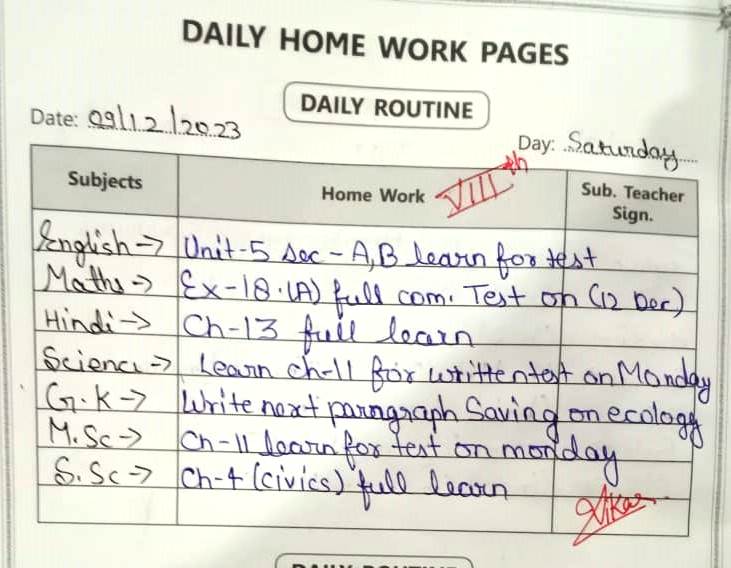 DAILY HOME WORK PAGES
DAILY ROUTINE
Date: 09/12/2023
Day: Saturday
Subjects Home Work VIIIth Sub. Teacher Sign.
English → Unit-5 Sec-A,B learn for test
Maths → Ex-18.(A) full com. Test on (12 Dec)
Hindi → Ch-13 full learn
Science → Learn ch-11 for written test on Monday
G.K → Write next paragraph Saving on ecology
M.Sc → Ch-11 learn for test on monday
S.Sc → Ch-4 (civics) full learn
Vikas
DAILY ROUTINE